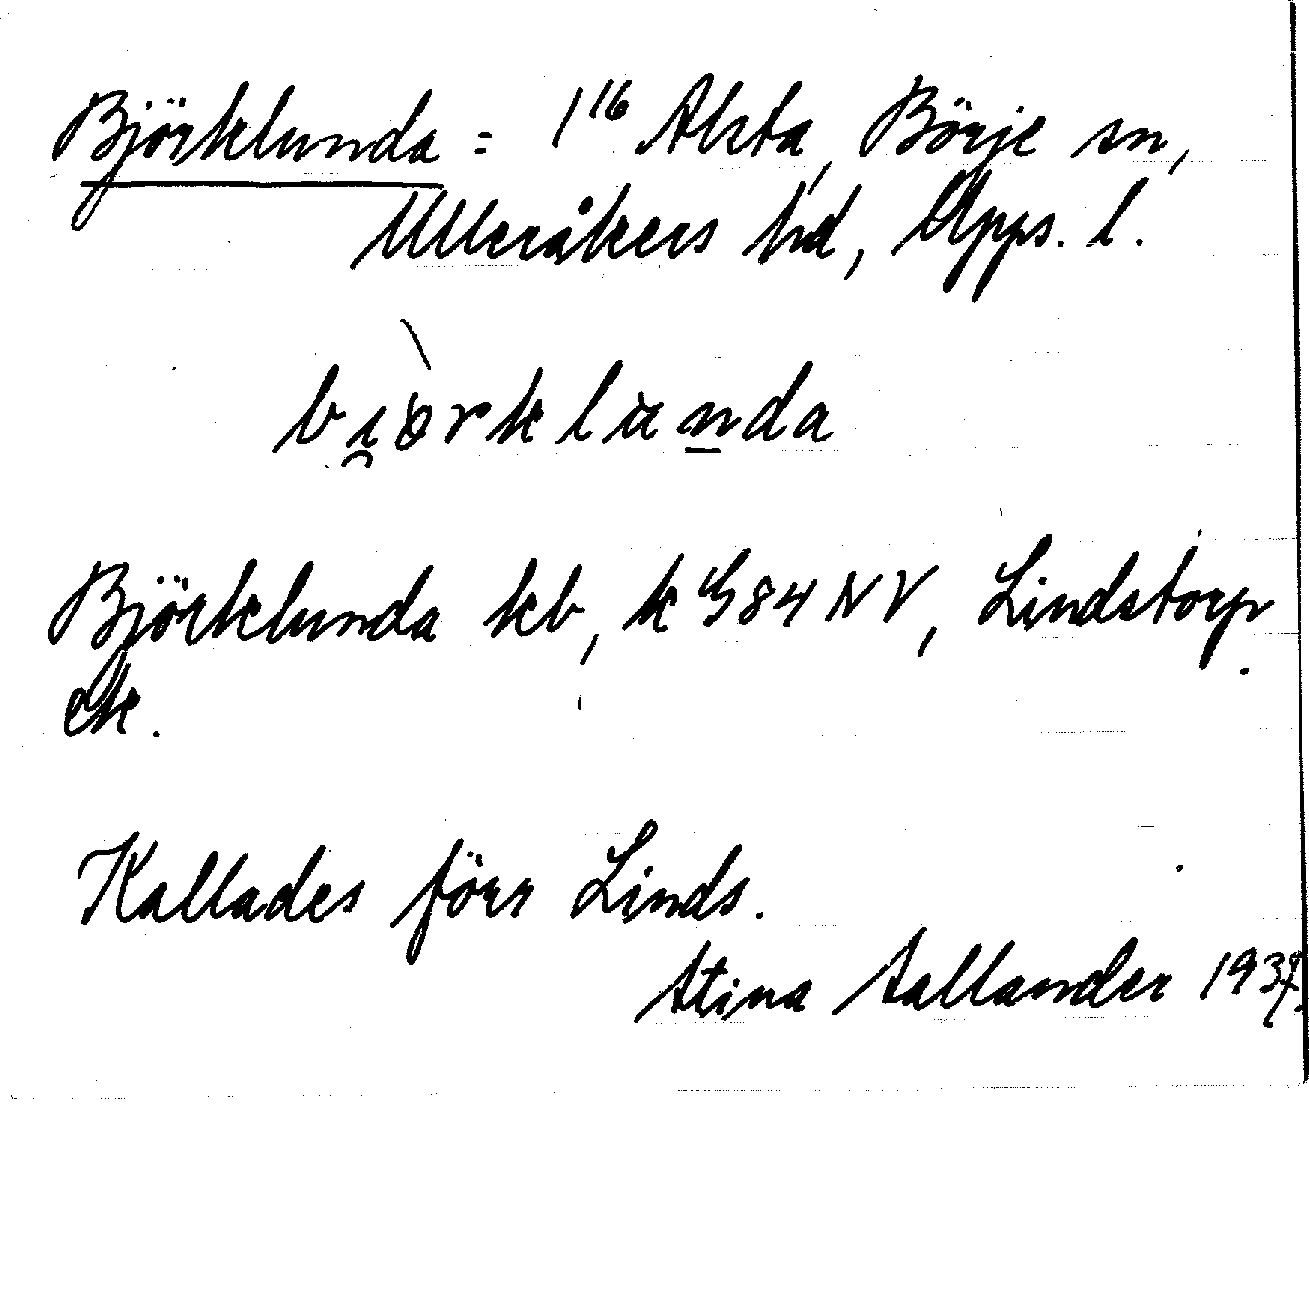 Björklunda = 1¹⁶ Alsta, Börje sn,
Ulleråkers hd, Upps. l.
bi̯òrklunda
Björklunda kb, k G 84 NV, Lindstorp
ek.
Kallades förr Linds.
Stina Sallander 1937.